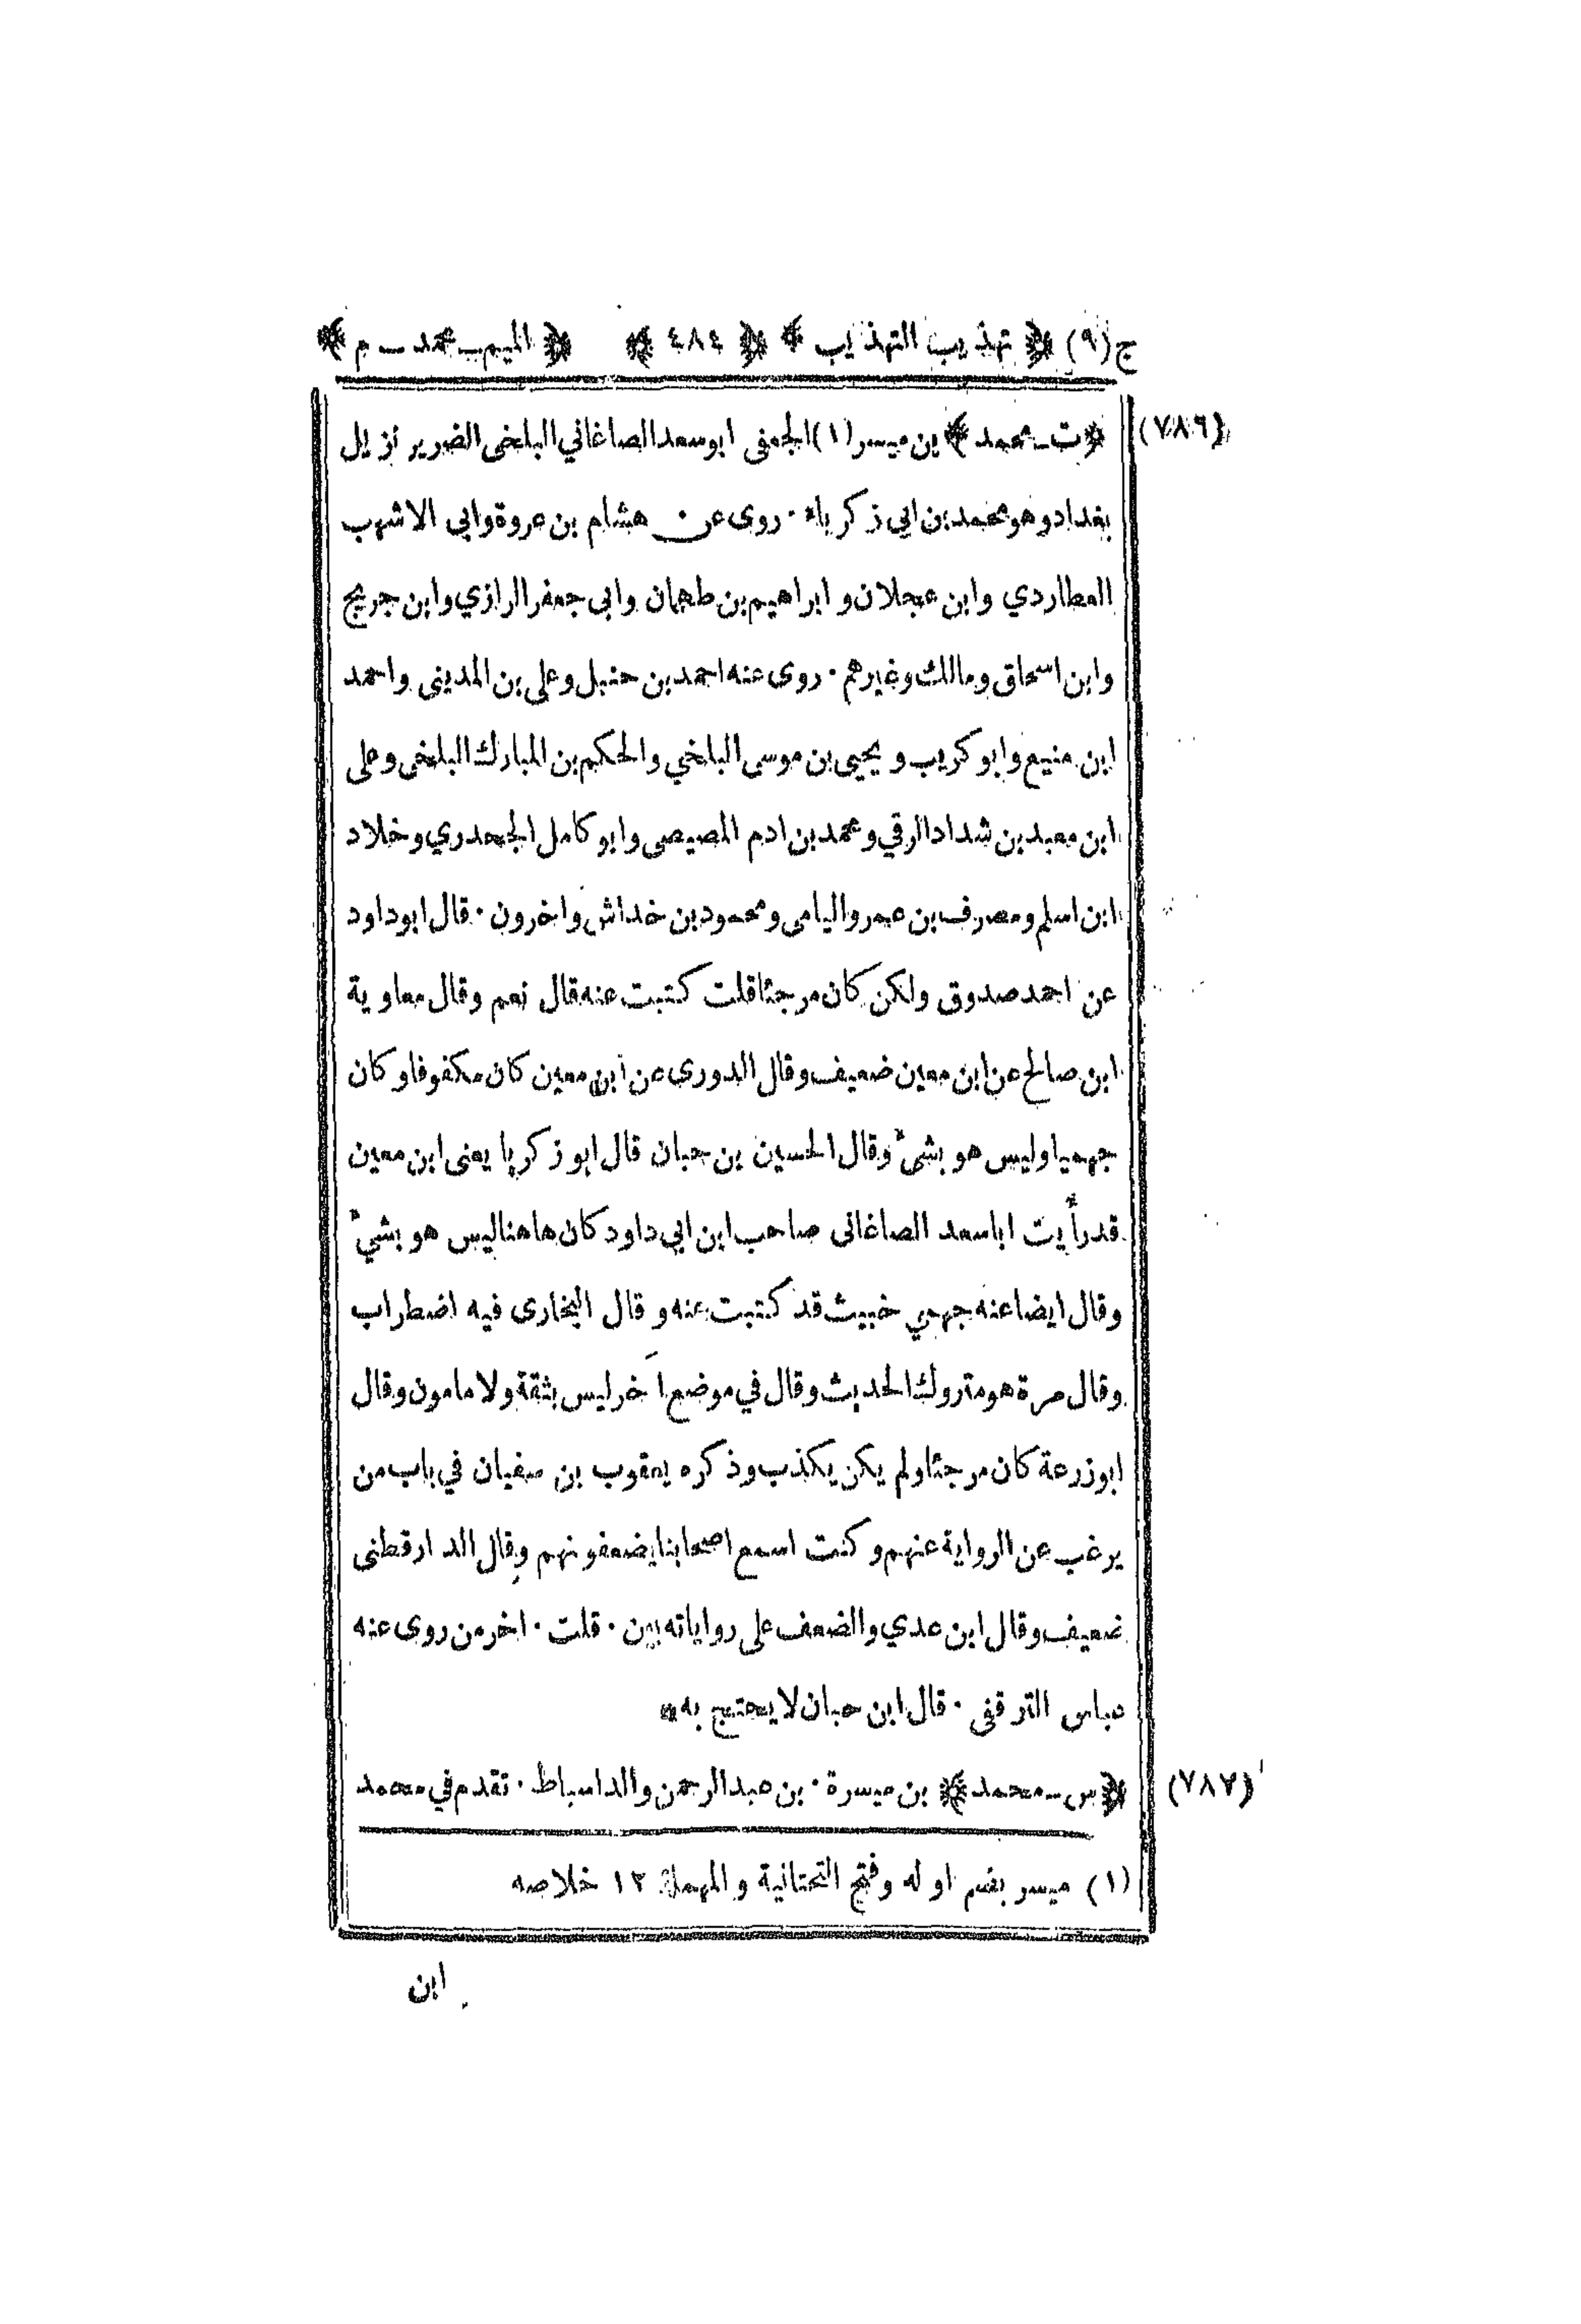 ج(٩) ﴿ تهذيب التهذيب ﴾ ﴿ ٤٨٤ ﴾ ﴿ الميم ـ محمد ـ م ﴾
(٧٨٦) ﴿ ت ـ محمد ﴾ بن ميسر (١) الجعفى ابو سعد الصاغاني البلخى الضرير نزيل
بغداد وهو محمد بن ابي زكرياء · روى عن · هشام بن عروة وابي الاشهب
العطاردي وابن عجلان و ابراهيم بن طهمان وابى جعفر الرازي وابن جريج
وابن اسحاق ومالك وغيرهم · روى عنه احمد بن حنبل وعلى بن المدينى واحمد
ابن منيع وابو كريب و يحيى بن موسى البلخي والحكم بن المبارك البلخى وعلى
ابن معبد بن شداد الرقي ومحمد بن ادم المصيصى وابو كامل الجحدري وخلاد
ابن اسلم ومصرف بن عمرو اليامى ومحمود بن خداش واخرون · قال ابو داود
عن احمد صدوق ولكن كان مرجئا قلت كتبت عنه قال نعم وقال معاوية
ابن صالح عن ابن معين ضعيف وقال الدورى عن ابن معين كان مكفوفا وكان
جهميا وليس هو بشىء وقال الحسين بن حبان قال ابو زكريا يعنى ابن معين
قد رأيت ابا سعد الصاغانى صاحب ابن ابي داود كان هاهنا ليس هو بشيء
وقال ايضا عنه جهمي خبيث قد كتبت عنه و قال البخارى فيه اضطراب
وقال مرة هو متروك الحديث وقال في موضع اخر ليس بثقة ولا مامون وقال
ابو زرعة كان مرجئا ولم يكن يكذب وذكره يعقوب بن سفيان في باب من
يرغب عن الرواية عنهم و كنت اسمع اصحابنا يضعفونهم وقال الدارقطنى
ضعيف وقال ابن عدي والضعف على رواياته بين · قلت · اخر من روى عنه
عباس الترقفى · قال ابن حبان لا يحتج به *
(٧٨٧) ﴿ س ـ محمد ﴾ بن ميسرة · بن عبد الرحمن والد اسباط · تقدم في محمد
(١) ميسر بضم اوله وفتح التحتانية والمهملة ١٢ خلاصه
ابن